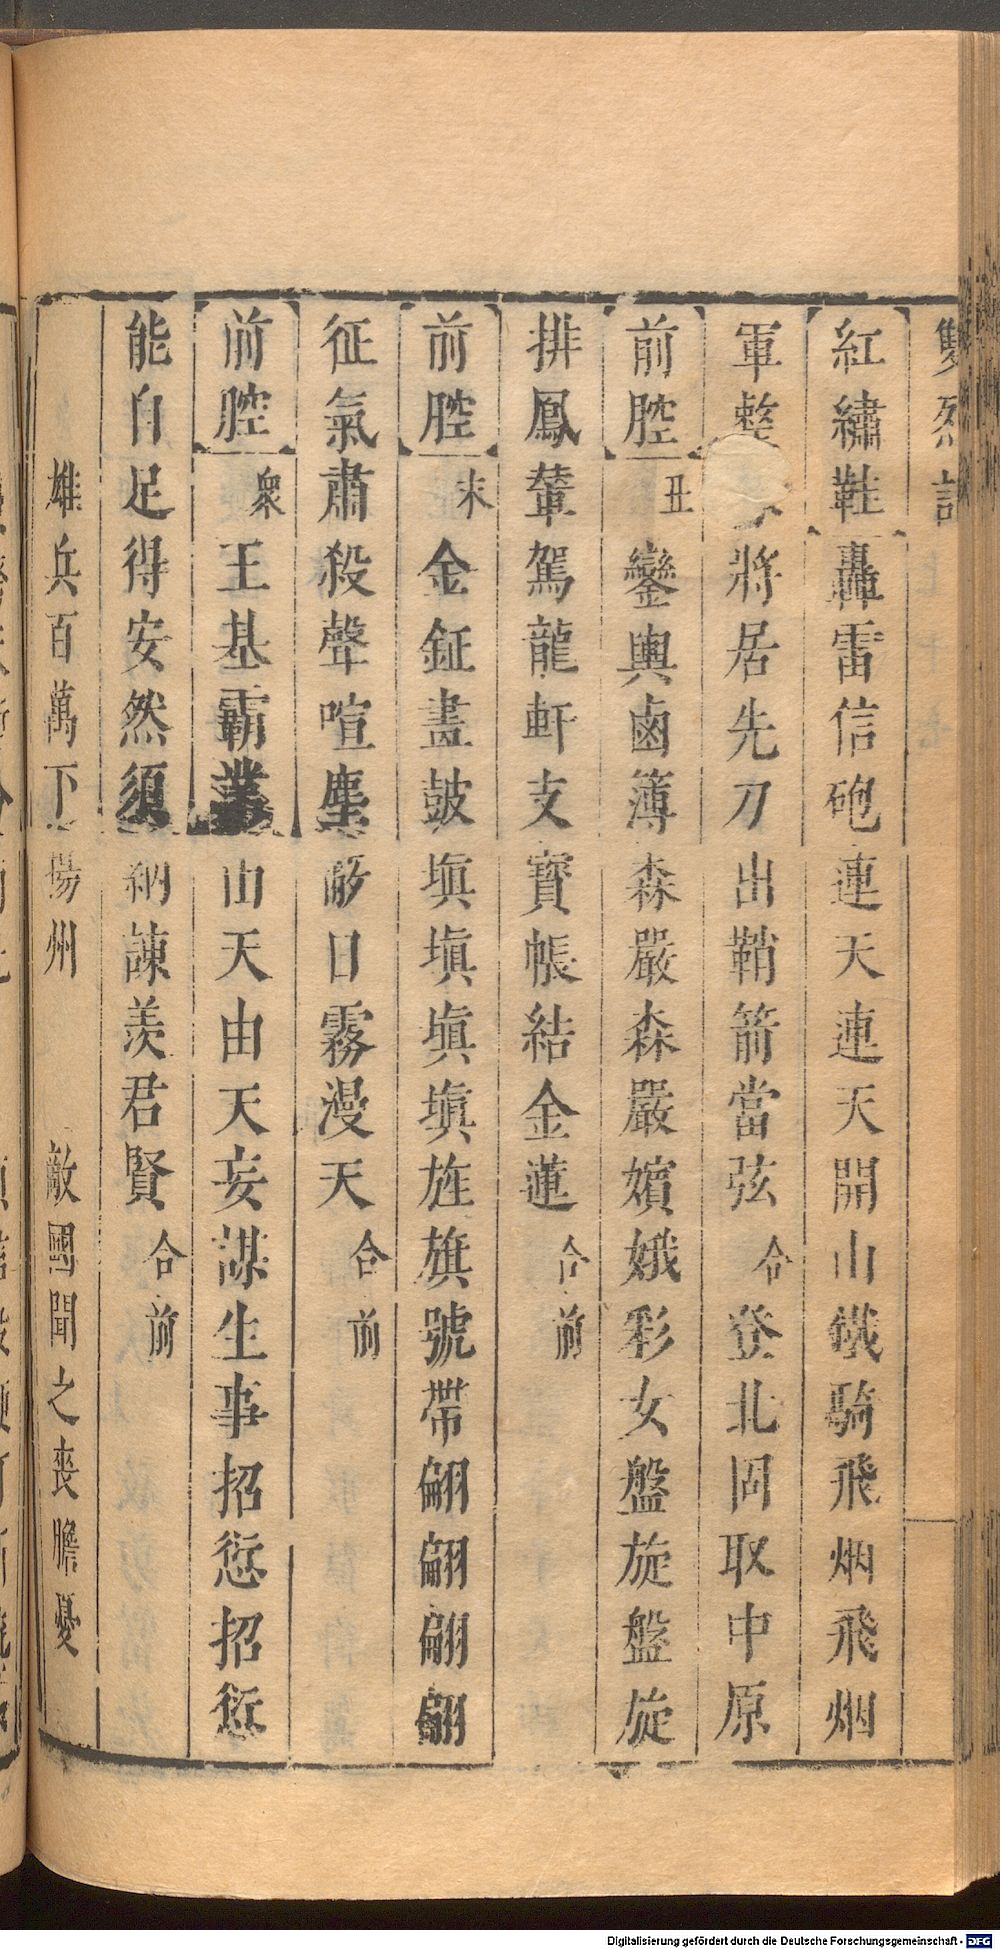 雙烈記
紅繡鞋 轟雷信砲連天連天開山鐵騎飛烟飛烟
軍整 將居先刀出鞘箭當弦 合 登北固取中原
前腔 丑 鑾輿鹵簿森嚴森嚴嬪娥彩女盤旋盤旋
排鳳輦駕龍軒支寶帳結金蓮 合前
前腔 末 金鉦畫鼓塡塡塡塡旌旗號帶翩翩翩翩
征氣肅殺聲喧塵蔽日霧漫天 合前
前腔 衆 王基霸業由天由天妄謀生事招愆招愆
能自足得安然須納諫羨君賢 合前
雄兵百萬下揚州 敵國聞之喪膽憂
Digitalisierung gefördert durch die Deutsche Forschungsgemeinschaft - DFG